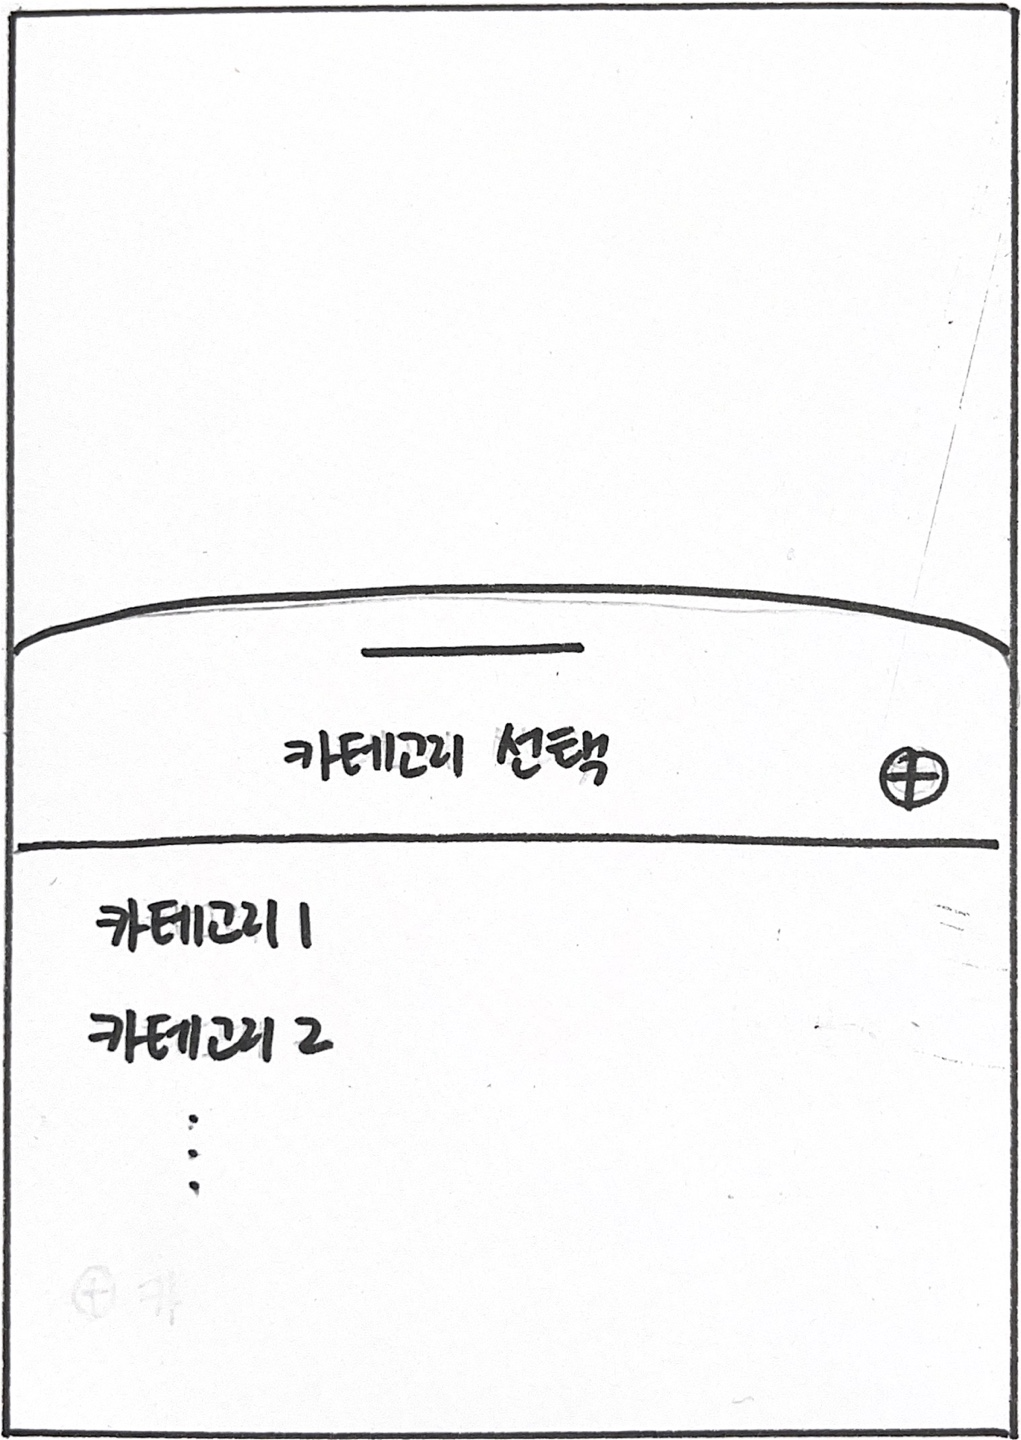 카테고리 선택
카테고리 1
카테고리 2